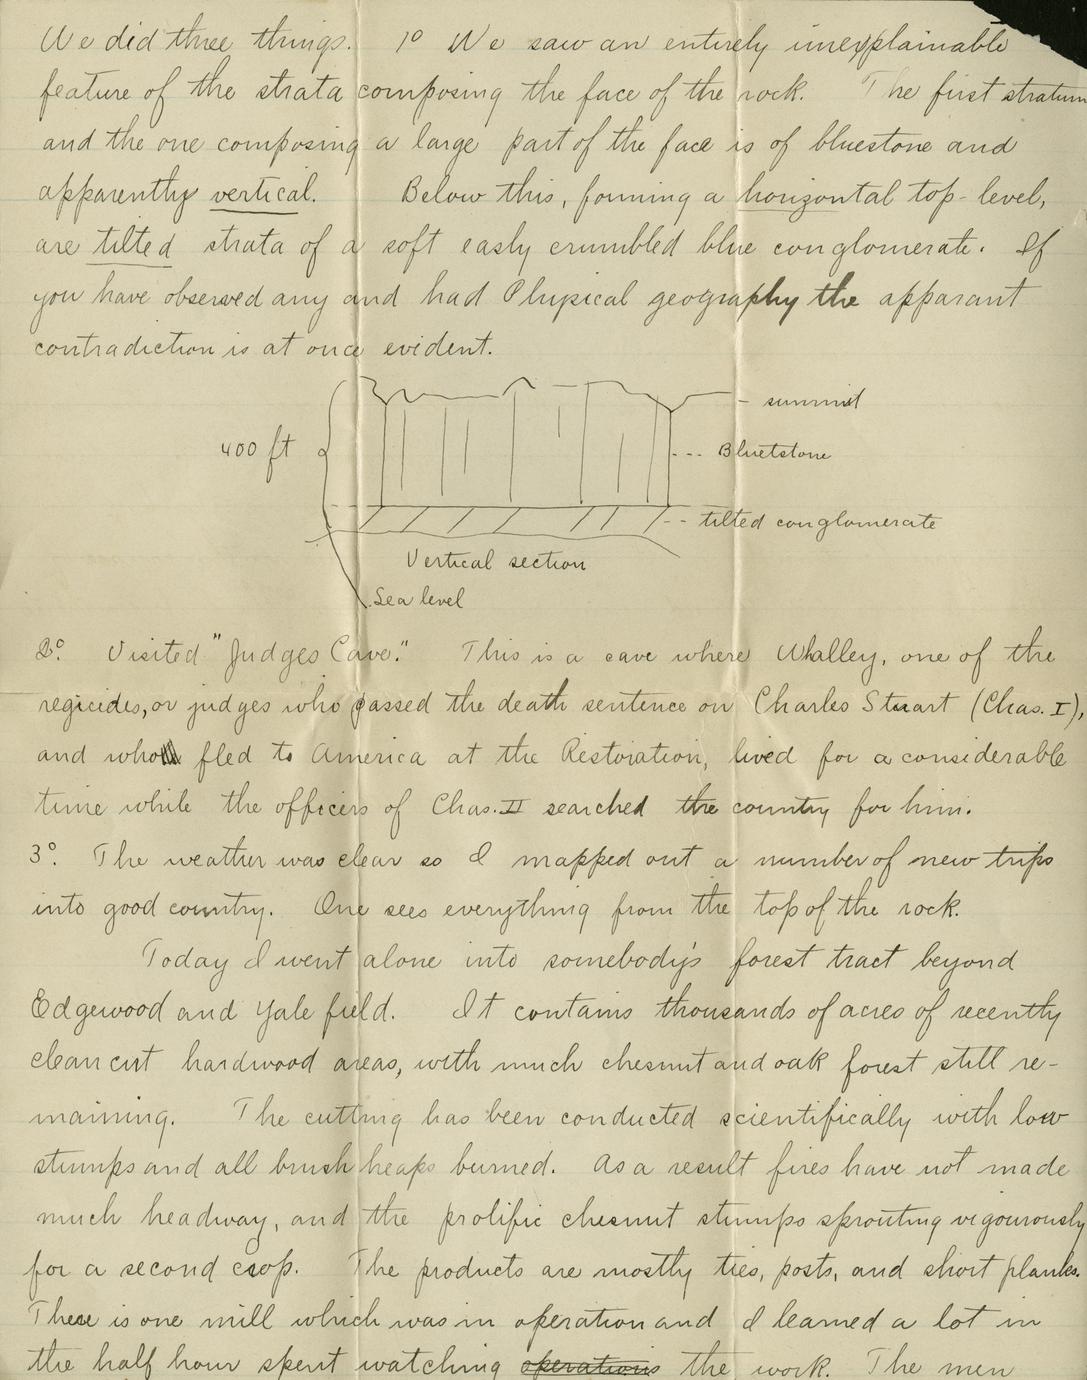 We did three things. 1º We saw an entirely unexplainable
feature of the strata composing the face of the rock. The first stratum
and the one composing a large part of the face is of bluestone and
apparently vertical. Below this, forming a horizontal top-level,
are tilted strata of a soft easly crumbled blue conglomerate. If
you have observed any and had Physical geography the apparant
contradiction is at once evident.
- summit
400 ft
--- Bluetstone
-- tilted conglomerate
Vertical section
Sea level
2º. Visited "Judges Cave." This is a cave where Whalley, one of the
regicides, or judges who passed the death sentence on Charles Stuart (Chas. I),
and who fled to America at the Restoration, lived for a considerable
time while the officers of Chas. II searched the country for him.
3º. The weather was clear so I mapped out a number of new trips
into good country. One sees everything from the top of the rock.
Today I went alone into somebody's forest tract beyond
Edgewood and Yale field. It contains thousands of acres of recently
clean cut hardwood areas, with much chesnut and oak forest still re-
maining. The cutting has been conducted scientifically with low
stumps and all brush heaps burned. As a result fires have not made
much headway, and the prolific chesnut stumps sprouting vigourously
for a second crop. The products are mostly ties, posts, and short planks.
There is one mill which was in operation and I learned a lot in
the half hour spent watching operations the work. The men